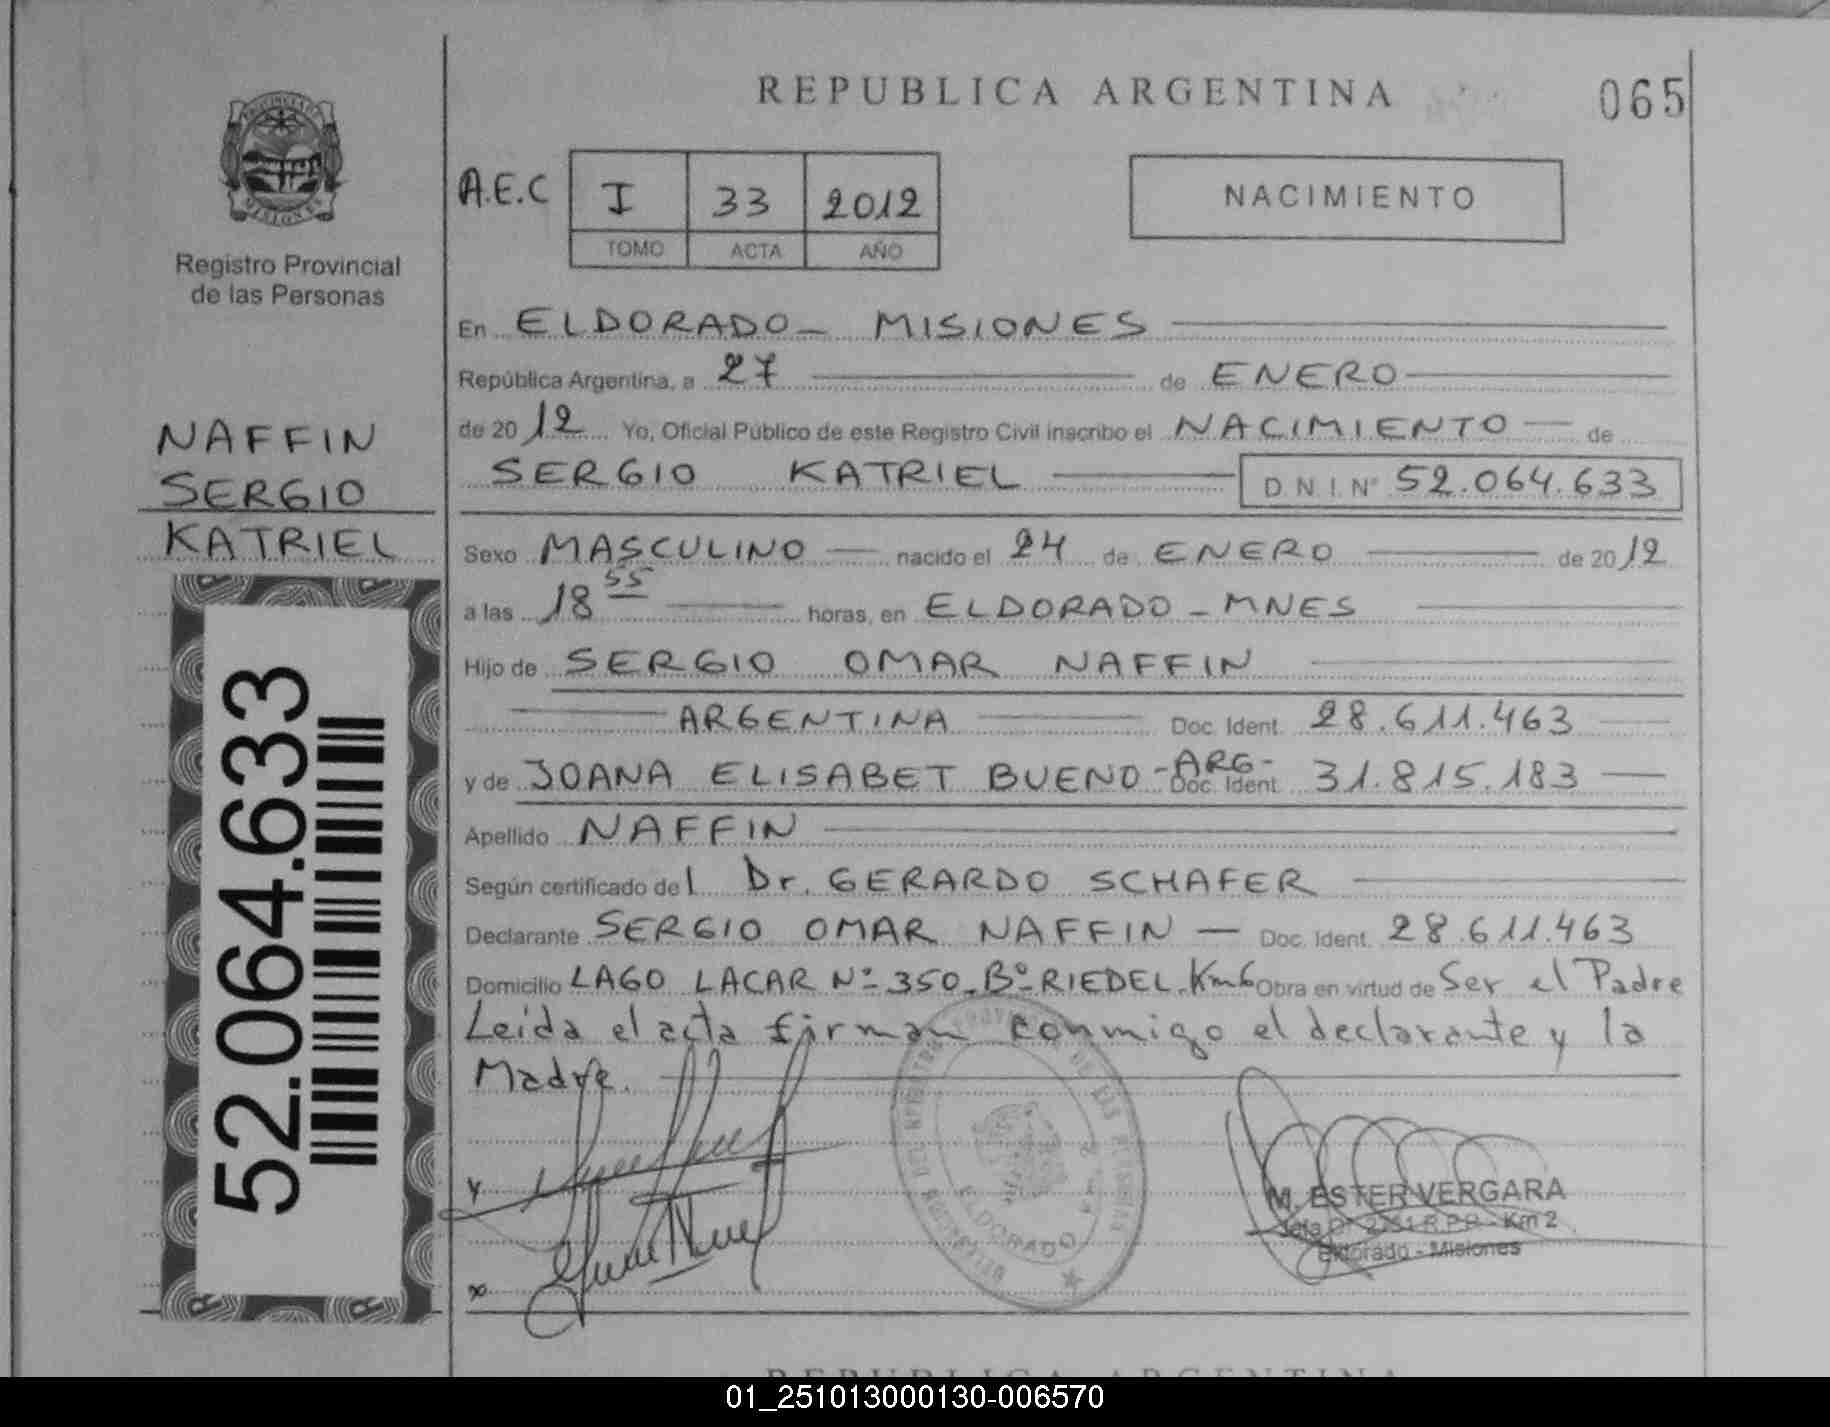 REPUBLICA ARGENTINA
065
PROVINCIA DE MISIONES
Registro Provincial
de las Personas
A.E.C I 33 2012
TOMO ACTA AÑO
NACIMIENTO
En ELDORADO - MISIONES
República Argentina, a 27 de ENERO
de 2012 Yo, Oficial Público de este Registro Civil inscribo el NACIMIENTO de
SERGIO KATRIEL D N I N° 52.064.633
NAFFIN
SERGIO
KATRIEL
Sexo MASCULINO nacido el 24 de ENERO de 2012
a las 18 55 horas, en ELDORADO - MNES
Hijo de SERGIO OMAR NAFFIN
ARGENTINA Doc. Ident. 28.611.463
y de JOANA ELISABET BUENO - ARG - Doc. Ident. 31.815.183
Apellido NAFFIN
Según certificado del Dr. GERARDO SCHAFER
Declarante SERGIO OMAR NAFFIN — Doc. Ident. 28.611.463
Domicilio LAGO LACAR Nº 350. Bº RIEDEL. Km6 Obra en virtud de Ser el Padre
Leida el acta firman conmigo el declarante y la
Madre.
52.064.633
ELDORADO
M. ESTER VERGARA
Km 2
Eldorado - Misiones
REPUBLICA ARGENTINA
01_251013000130-006570